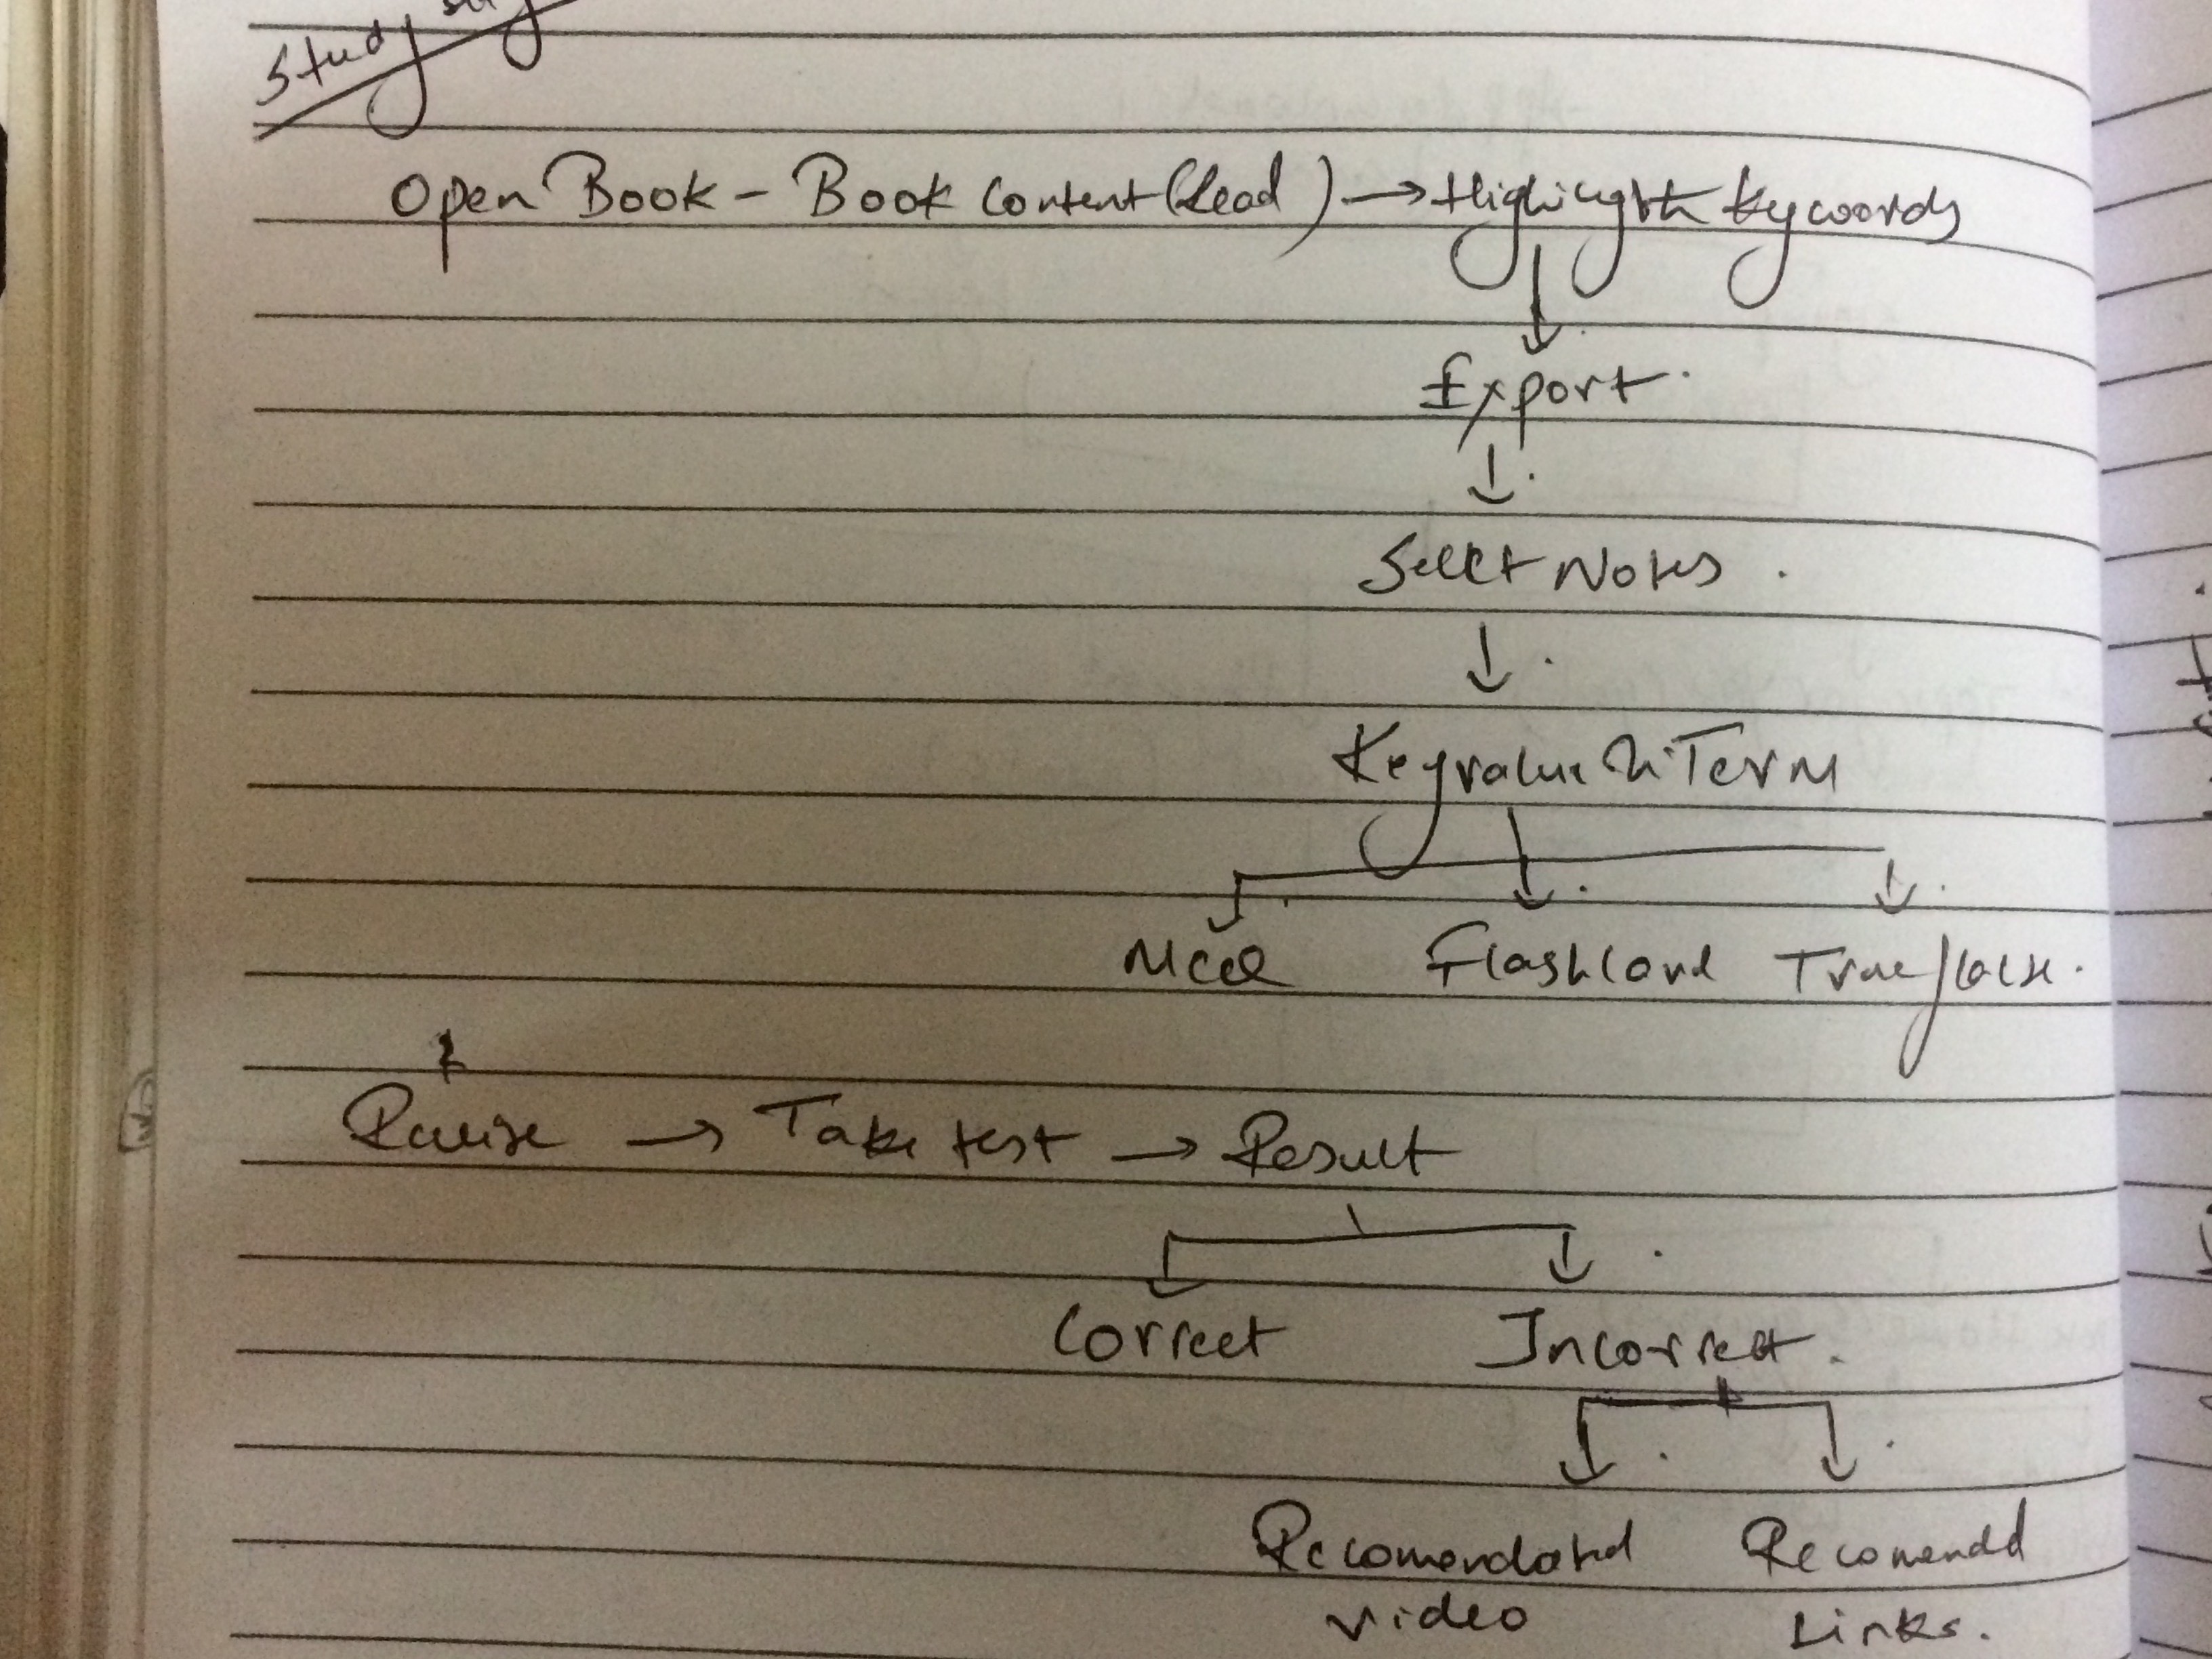 Study
Open Book - Book Content (Read) → Highligth keywords
Export.
Select Notes.
Keyvalue Term
MCQ Flashcard True/false.
Revise → Take test → Result
Correct Incorrect.
Recomendated Recomendd
video Links.